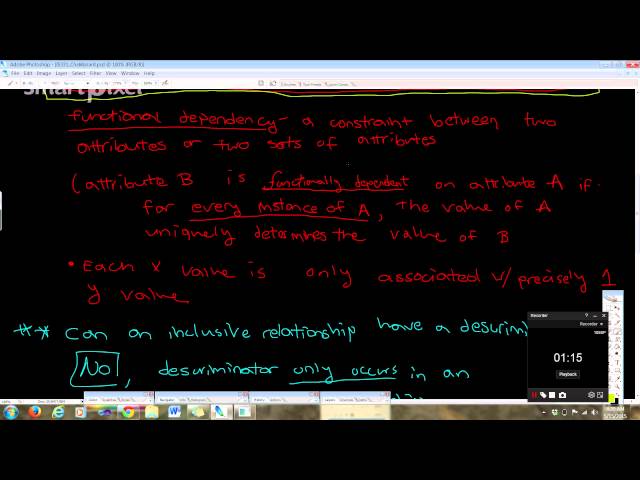 Adobe Photoshop
File Edit Image Layer Select Filter View Window Help
functional dependency - a constraint between two
attributes or two sets of attributes
(attribute B is functionally dependent on attribute A if
for every instance of A, the value of A
uniquely determines the value of B
• Each x value is only associated w/ precisely 1
y value
** Can an inclusive relationship have a descrim
No, descriminator only occurs in an
Recorder
Recorder
01:15
Playback